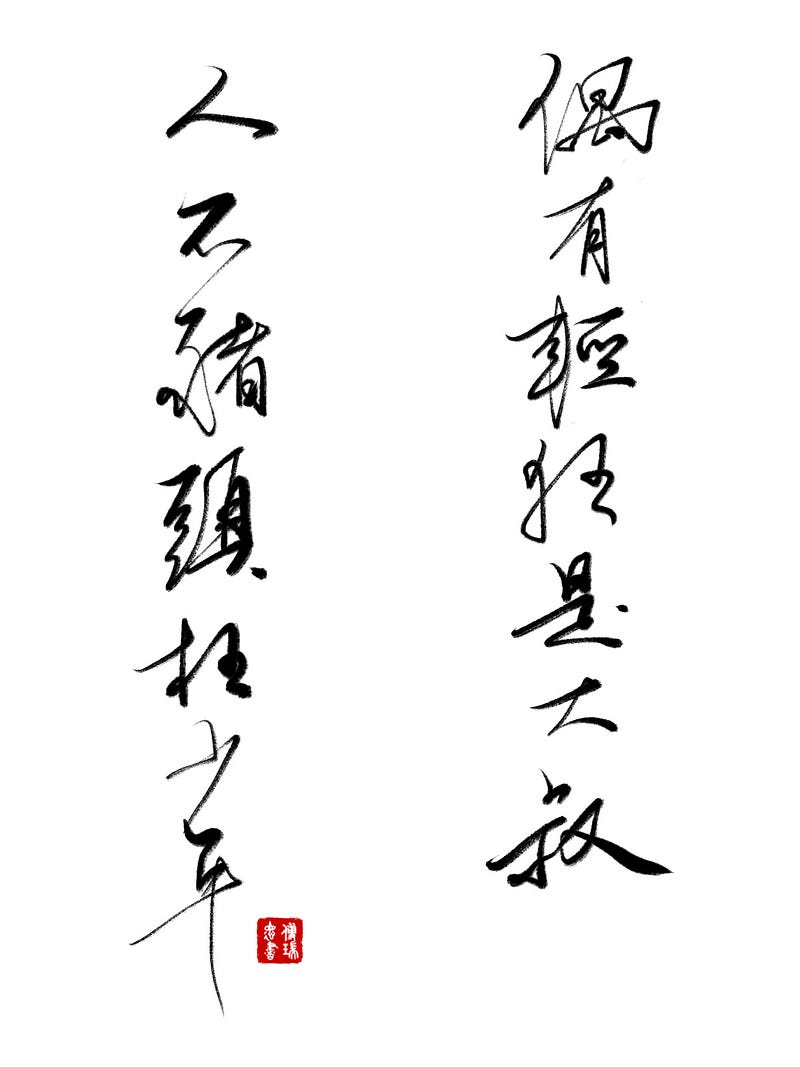 偶有輕狂是大叔
人不豬頭枉少年